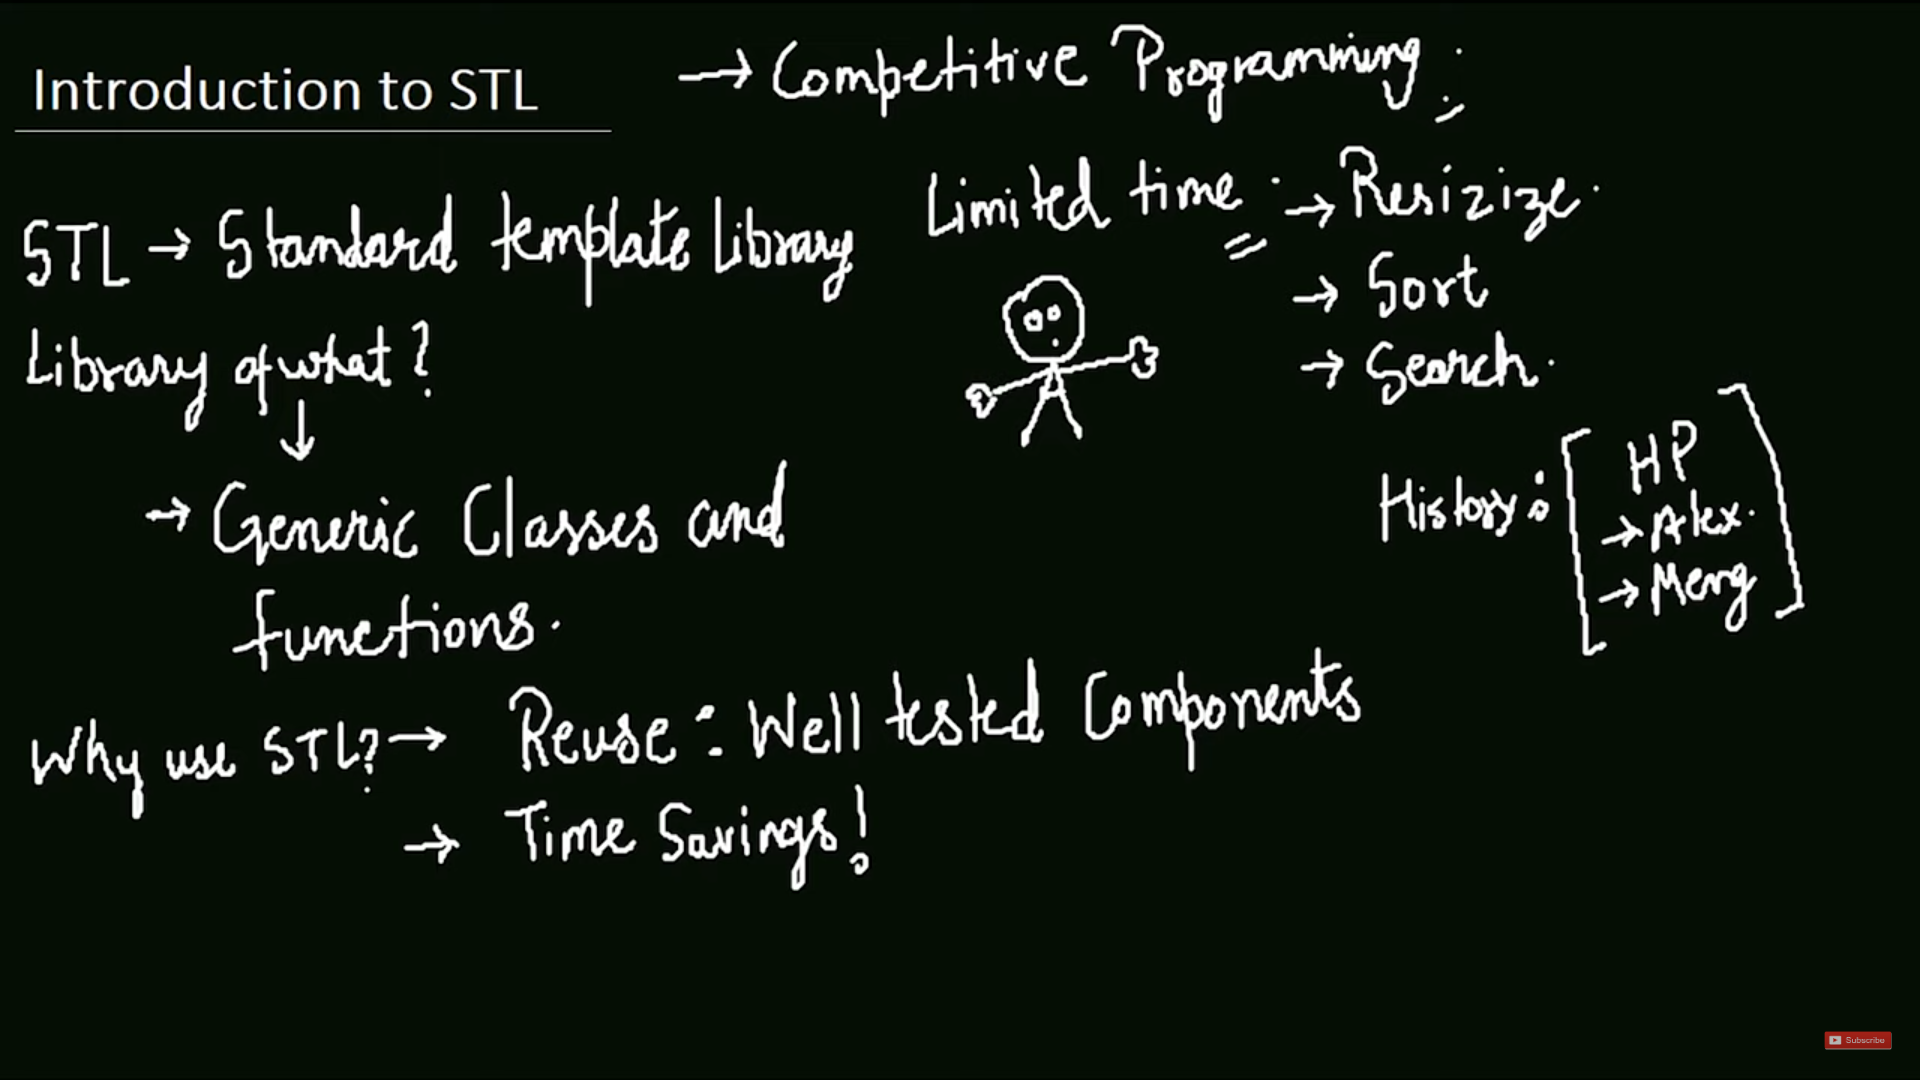 Introduction to STL
→ Competitive Programming
STL → Standard template Library
Library of what?
→ Generic Classes and
functions.
Limited time
→ Resizize.
→ Sort
→ Search.
History: [ HP
→ Alex.
→ Meng ]
Why use STL? → Reuse: Well tested Components
→ Time Savings!
Subscribe